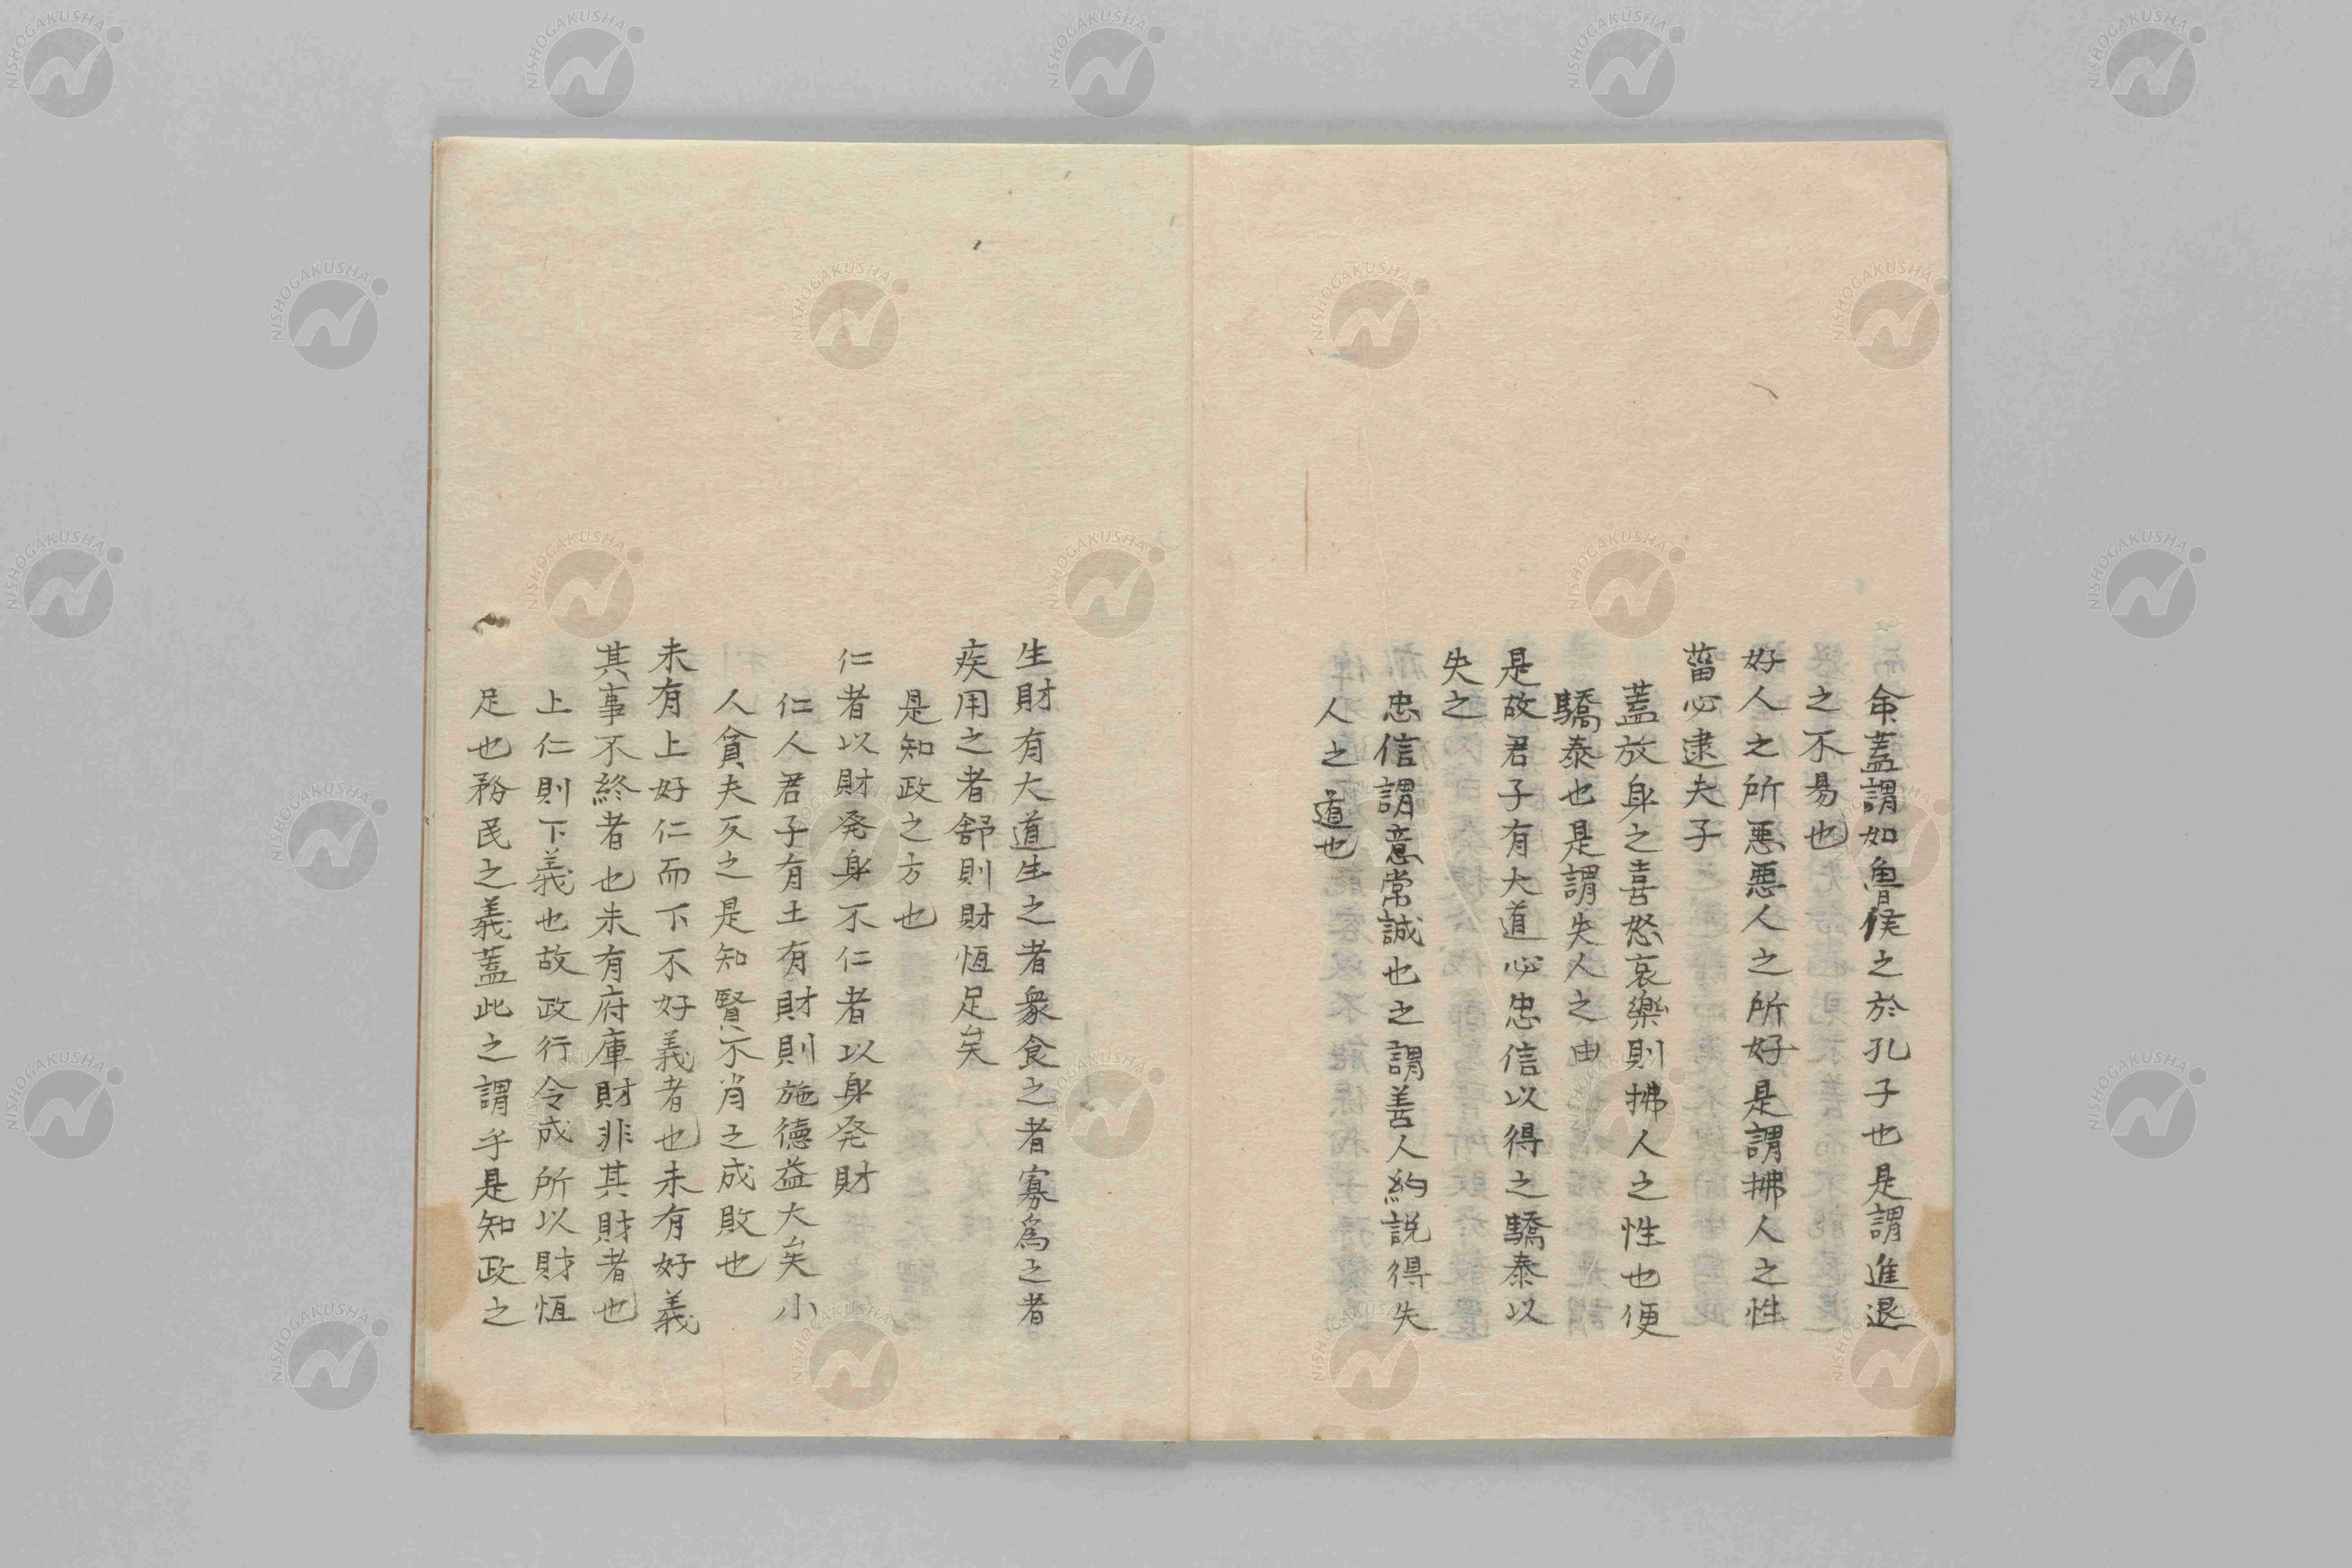 命蓋謂如魯侯之於孔子也是謂進退
之不易也
好人之所惡惡人之所好是謂拂人之性
菑必逮夫子
蓋放身之喜怒哀樂則拂人之性也便
驕泰也是謂失人之由
是故君子有大道必忠信以得之驕泰以
失之
忠信謂意常誠也之謂善人約説得失
人之道也
生財有大道生之者衆食之者寡爲之者
疾用之者舒則財恆足矣
是知政之方也
仁者以財発身不仁者以身発財
仁人君子有土有財則施德益大矣小
人貪夫反之是知賢不肖之成敗也
未有上好仁而下不好義者也未有好義
其事不終者也未有府庫財非其財者也
上仁則下義也故政行令成所以財恆
足也務民之義蓋此之謂乎是知政之
NISHOGAKUSHA